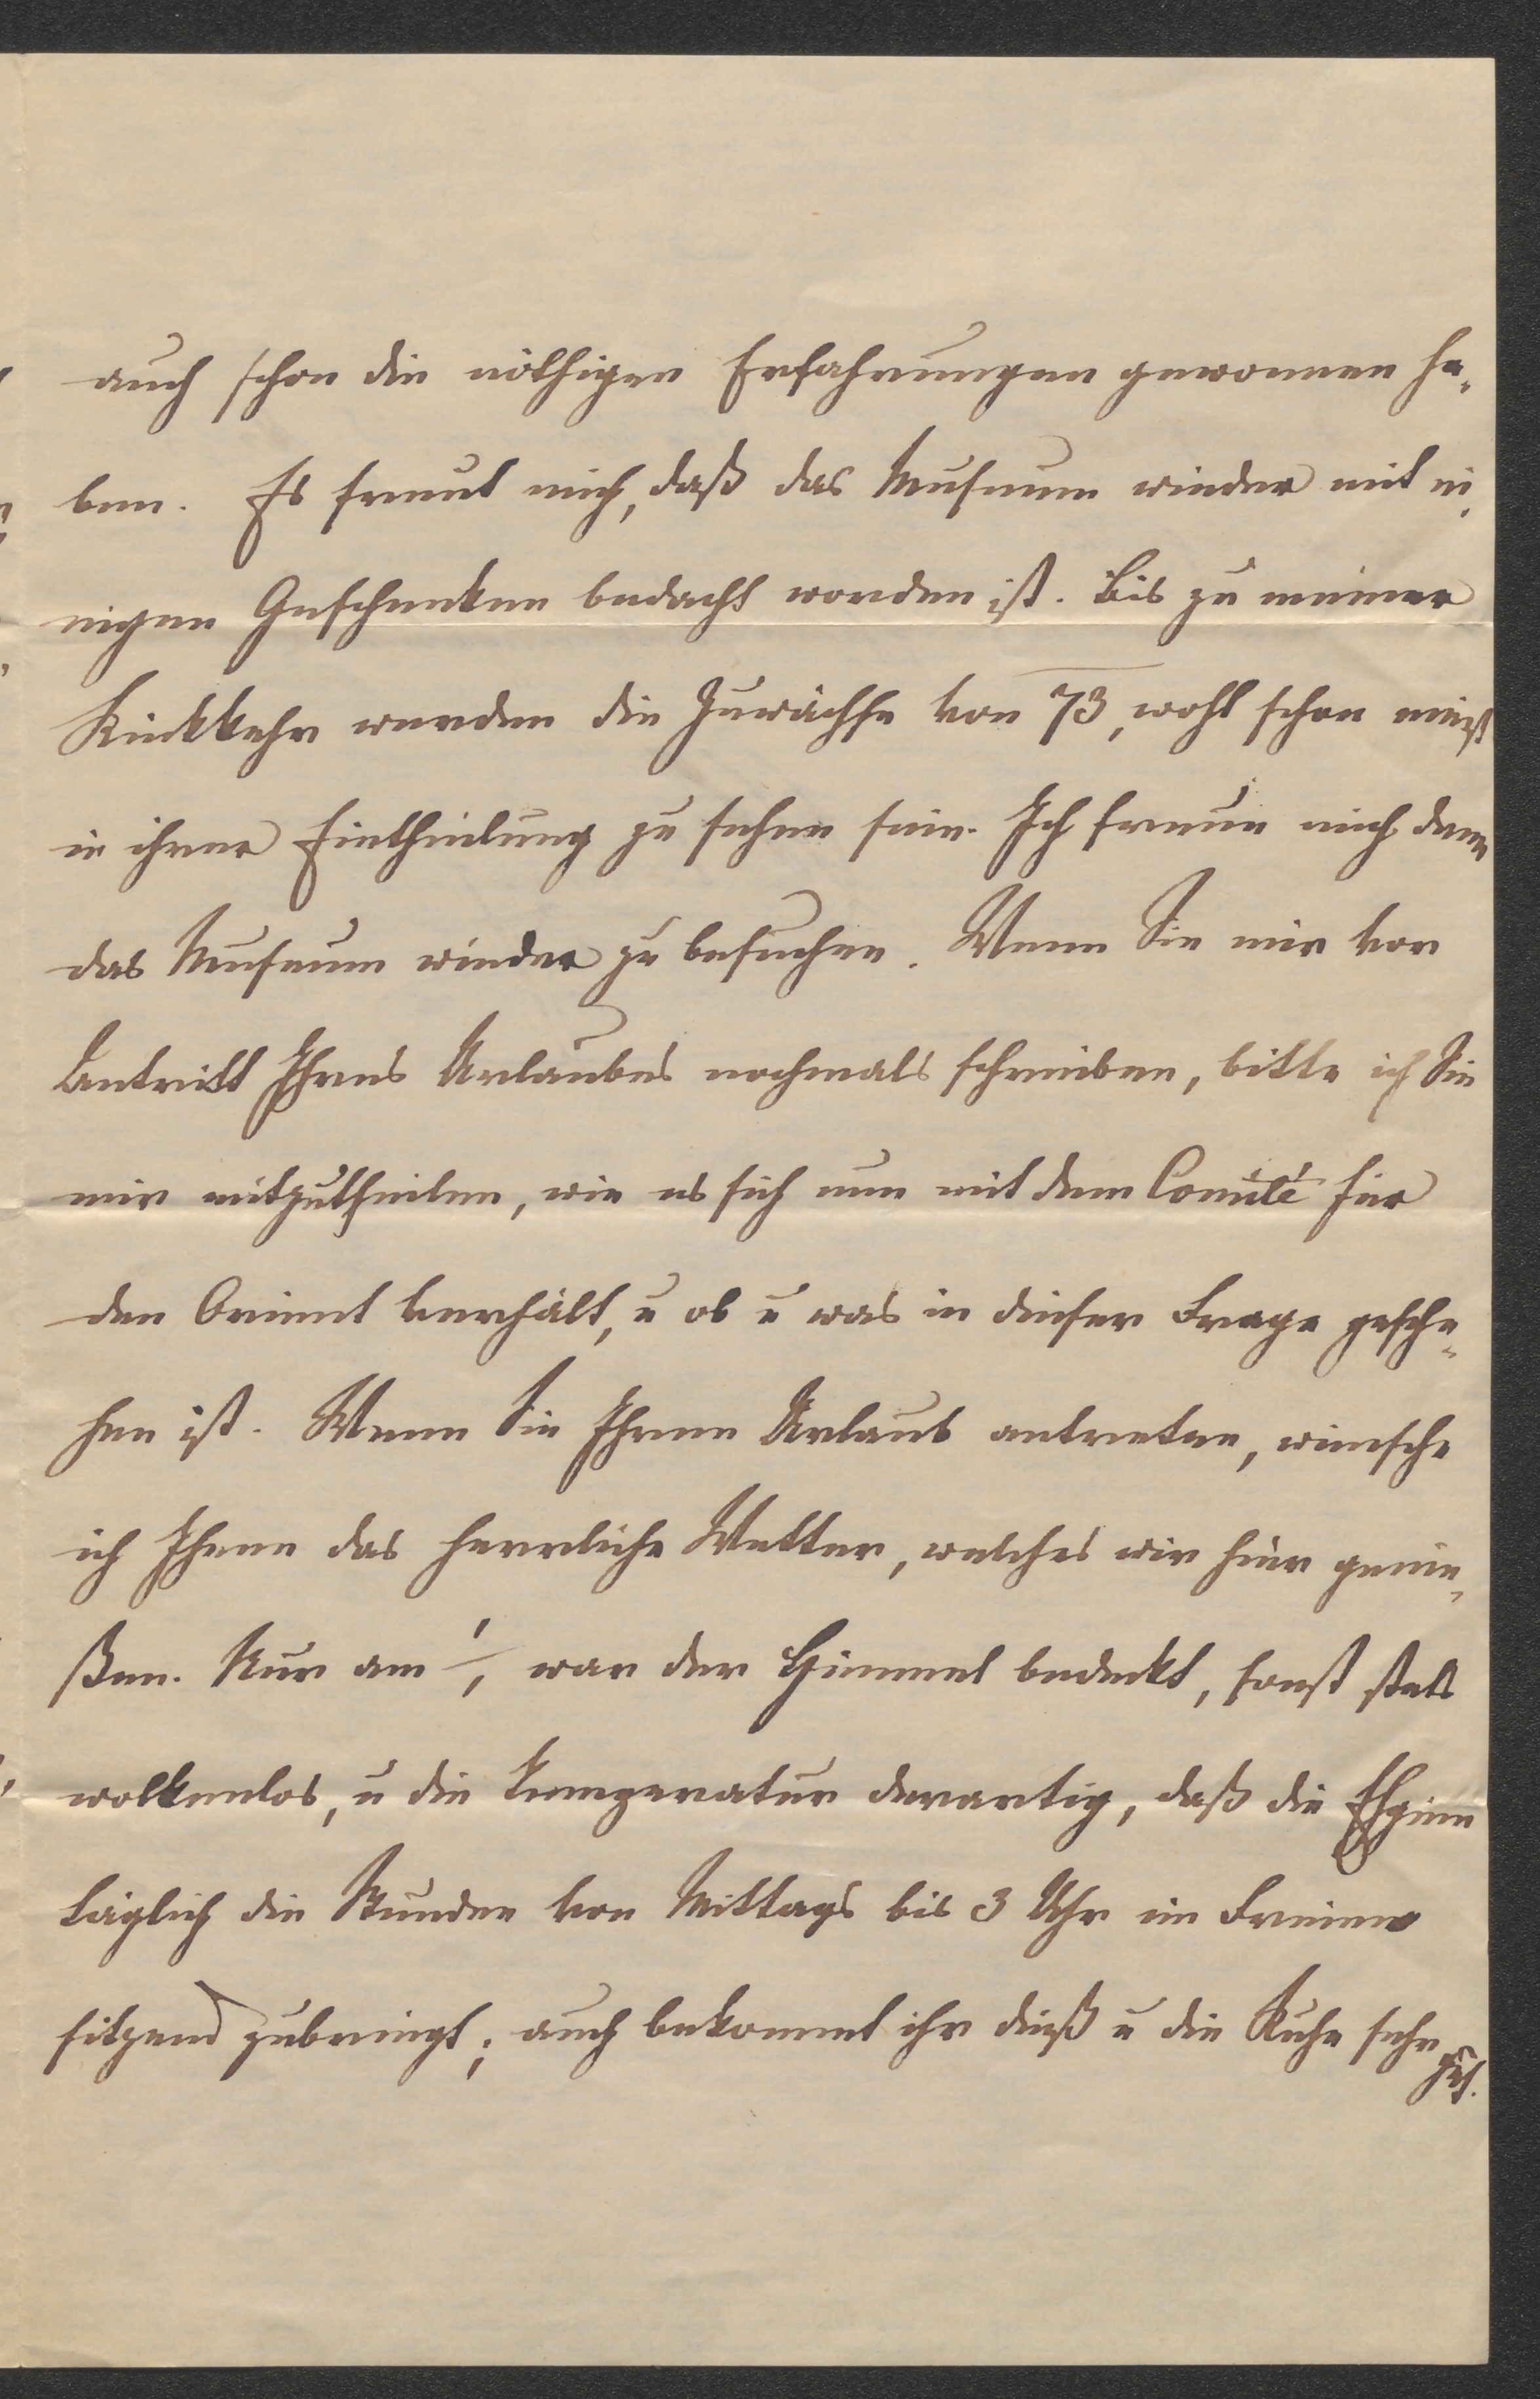 auch schon die nöthigen Erfahrungen gewonnen ha-
ben. Es freut mich, daß das Museum wieder mit ei-
nigen Geschenken bedacht worden ist. Bis zu meiner
Rückkehr werden die Zuwächse von 73, wohl schon meist
in ihrer Eintheilung zu sehen sein. Ich freue mich dann
das Museum wieder zu besuchen. Wenn Sie mir vor
Antritt Ihres Urlaubes nochmals schreiben, bitte ich Sie
mir mitzutheilen, wie es sich nun mit dem Comité für
den Orient verhält, u ob u was in dieser Frage gesche-
hen ist. Wenn Sie Ihren Urlaub antreten, wünsche
ich Ihnen das herrliche Wetter, welches wir hier genie-
ßen. Nur am war der Himmel bedeckt, sonst stets
wolkenlos, u die Temperatur derartig, daß die
täglich die Stunden von Mittags bis 3 Uhr im Freien
sitzend zubringt; auch bekommt ihr dieß u die Ruhe sehr
gut.